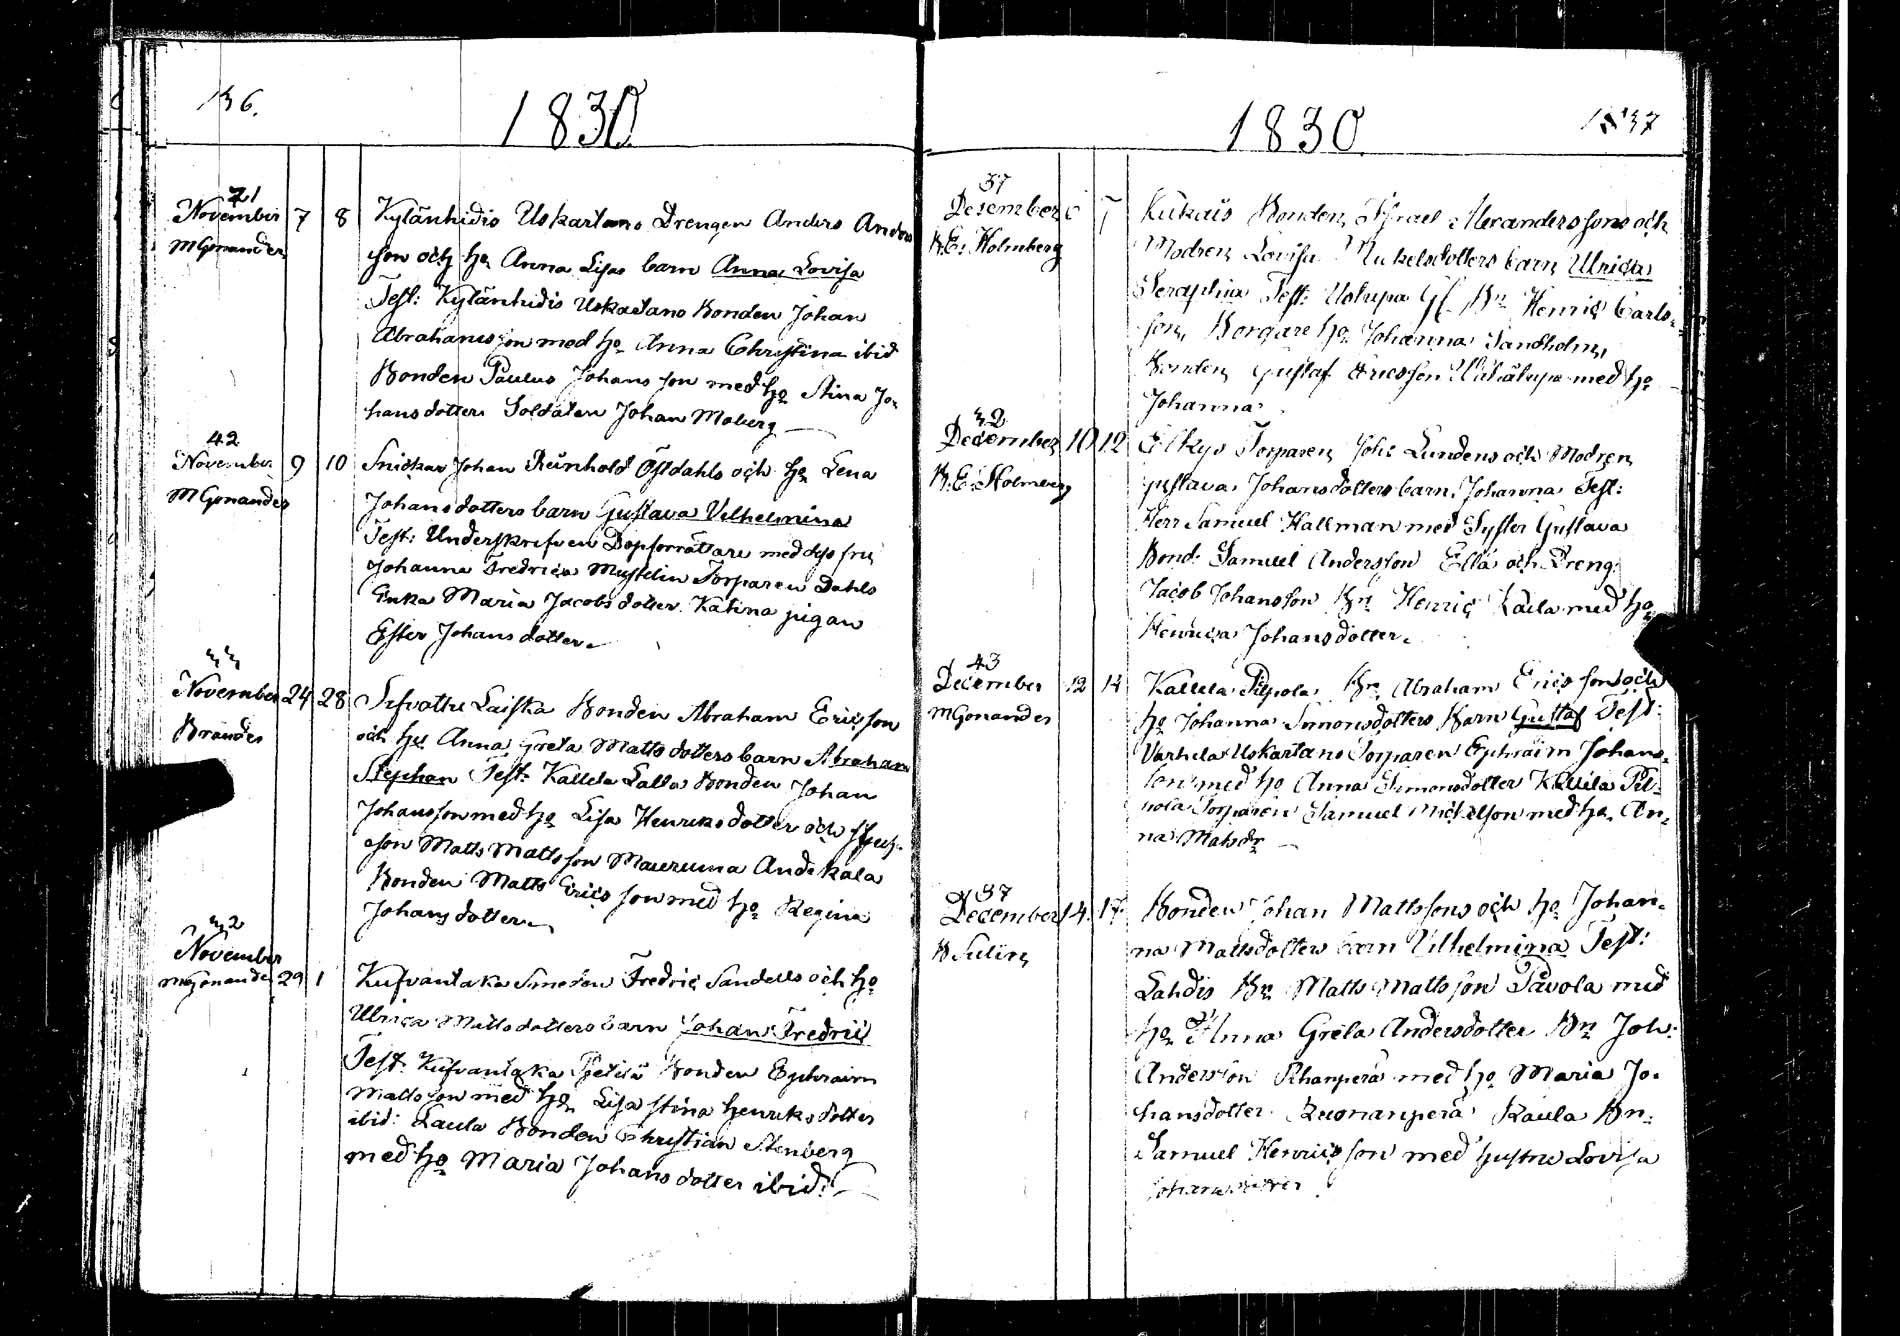 136.
1830
21
November 7 8 Kylänhidis Uskartano Drengen Anders Anders
MGonander son och ho Anna Lisas barn Anna Lovisa
Test: Kylänhidis Uskartano Bonden Johan
Abrahamsson med ho Anna Christina ibid
Bonden Paulus Johansson med ho Stina Jo-
hansdotter Soldaten Johan Moberg
42
November 9 10 Snickar Johan Reinhold Östdahls och ho Lena
MGonander Johansdotters barn Gustava Vilhelmina
Test: Underskrefven Dopförrättare med dess fru
Johanna Fredrica Mustelin Torparen Dahls
Enka Maria Jacobsdotter Katina pigan
Ester Johansdotter
33
November 24 28 Laiska Bonden Abraham Ericsson
Brander och ho Anna Greta Mattsdotters barn Abraham
Stephan Test: Kallela Lalla Bonden Johan
Johansson med ho Lisa Henriksdotter och
son Matts Mattsson Mauruma Andikala
Bonden Matts Ericsson med ho Regina
Johansdotter
32
November
MGonander 29 1 Kufvantaka Smeden Fredric Sandells och ho
Ulrica Mattsdotters barn Johan Fredric
Test: Kufvantaka Bonden Ephraim
Mattsson med ho Lisa Stina Henriksdotter
ibid: Laula Bonden Christian Stenberg
med ho Maria Johansdotter ibid:
137
1830
37
Desember 6 7 Kukais Bonden Israel Alexanderssons och
B.E. Holmberg Modren Lovisa Mickelsdotters barn Ulrica
Seraphia Test: Uolupa Bn Henric Carls-
son, Borgare ho Johanna Sandholm,
Bonden Gustaf Ericsson med ho
Johanna
32
December 10 12 Elkys Torparen Joh: Lundens och Modren
B.E. Holmberg Gustava Johansdotters barn Johanna Test:
Herr Samuel Hallman med Syster Gustava
Bond: Samuel Andersson Ellä och Dreng:
Jacob Johansson Bn Henric Kaula med ho
Henrica Johansdotter
43
December 12 14 Kallela Pilpola Bn Abraham Ericssons och
MGonander ho Johanna Simonsdotters Barn Gustaf Test:
Varhela Uskartano Torparen Ephraim Johans-
son med ho Anna Simonsdotter Kallela Pil-
pola Torparen Samuel Michelsson med ho An-
na Matsdr
37
December 14 17 Bonden Johan Mattssons och ho Johan-
na Mattsdotters barn Vilhelmina Test:
Lahdis Bn Matts Mattsson Pavola med
ho Anna Greta Andersdotter Bn Joh:
Andersson med ho Maria Jo-
hansdotter Kuonanperä Kaula Bn:
Samuel Henricsson med hustru Lovisa